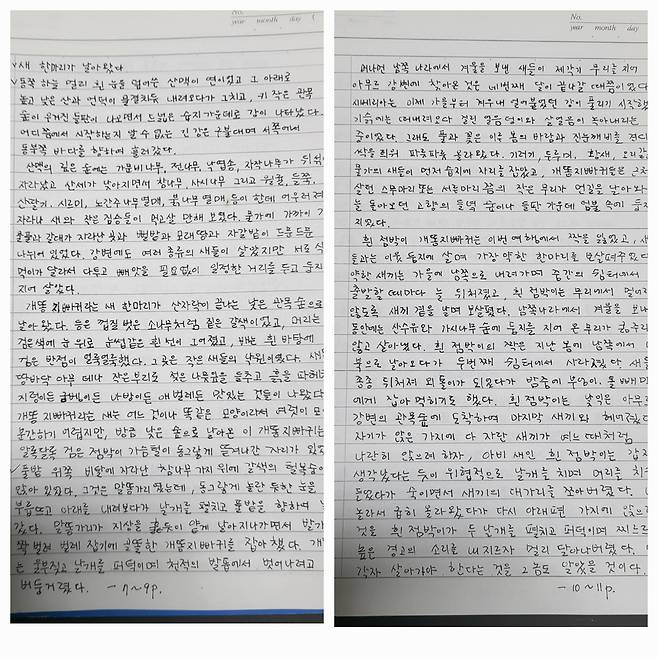 No.
year month day (
√새 한마리가 날아왔다
√동쪽 하늘 멀리 흰 눈을 덮어쓴 산맥이 연이었고 그 아래로
높고 낮은 산과 언덕이 물결치듯 내려오다가 그치고, 키 작은 관목
숲이 우거진 들판이 나오면서 드넓은 습지 가운데로 강이 나타났다.
어디쯤에서 시작하는지 알 수 없는 긴 강은 구불대며 서쪽에서
동북쪽 바다를 향하여 흘러갔다.
산맥의 깊은 숲에는 가문비나무, 전나무, 낙엽송, 자작나무가 뒤섞여
자라났고 산세가 낮아지면서 참나무, 사시나무 그리고 월귤, 들쭉,
산딸기, 시로미, 노간주나무열매, 붉나무열매, 등이 한데 어우러져
자라나 새와 작은 짐승들이 먹고살 만해 보였다. 물가에 가까이
갈대가 자라난 늪과 뻘밭과 모래땅과 자갈밭이 드문드문
나뉘어 있었다. 강변에도 여러 종류의 새들이 살았지만 서로
먹이가 달라서 다투고 빼앗을 필요없이 일정한 거리를 두고 둥지
지어 살았다.
개똥지빠귀라는 새 한마리가 산자락이 끝나는 낮은 관목 숲으로
날아 왔다. 등은 껍질 벗은 소나무처럼 짙은 갈색이었고, 머리는
검은색에 눈 위로 눈썹같은 흰 선이 그어졌고, 배는 흰 바탕에
검은 반점이 얼룩얼룩했다. 그곳은 작은 새들의 낙원이었다. 새들
땅바닥 아무 데나 작은 부리로 젖은 나뭇잎을 들추고 흙을 파헤
지렁이든 굼벵이든 나방이든 애벌레든 맛있는 것들이 나왔다
개똥지빠귀라는 새는 어느 것이나 똑같은 모양이라서 여럿이 모이
분간하기 어렵지만, 방금 낮은 숲으로 날아온 이 개똥지빠귀는
얼룩덜룩 검은 점박이 가슴털이 동그랗게 들겨나간 자리가 있었
√들밭 위쪽 비탈에 자라난 참나무 가지 위에 갈색의 텃복숭이
앉아 있었다. 그것은 말똥가리였는데, 동그랗게 놀란 듯한 눈을
부릅뜨고 아래를 내려보다가 날개를 펼치고 풀밭을 향하여
갔다. 말똥가리가 지상을 훑듯이 얕게 날아 지나가면서 발가
쫙 벌려 벌레 잡기에 골똘한 개똥지빠귀를 잡아챘다. 개똥
는 울부짖고 날개를 퍼덕이며 천적의 발톱에서 벗어나려고
버둥거렸다. - 7~9p.
No.
year month day
머나먼 남쪽 나라에서 겨울을 보낸 새들이 제각기 무리를 지어
아무르 강변에 찾아온 것은 네번째 달이 뜰나갈 때쯤이었다.
시베리아는 이제 가을부터 겨우내 얼어붙었던 강이 풀리기 시작했
기슭에는 떠내려오다 걸린 얼음덩이와 살얼음이 녹아내리는
중이었다. 그래도 풀과 꽃은 이른 봄의 바람과 진눈깨비를 견디
싹을 틔워 파릇파릇 올라왔다. 기러기, 두루미, 황새, 오리같은
물가의 새들이 먼저 습지에 자리를 잡았고, 개똥지빠귀들은 근처
살던 스무마리 또는 서른마리 쯤의 작은 무리가 언길을 날아와
는 돌아보던 고향의 들녘 숲이나 들판 가운데 덤불 속에 둥지
지었다.
흰 점박이 개똥지빠귀는 이번 여행에서 짝을 잃었고, 새
들과는 이웃 둥지에 살며 가장 약한 한마리를 보살펴주었다
약한 새끼는 가을에 남쪽으로 내려가며 중간의 쉼터에서
출발할 때마다 늘 뒤처졌고, 흰 점박이는 무리에서 멀어지
않도록 새끼 곁을 날며 보살폈다. 남쪽나라에서 겨울을 보내
동안에는 산수유와 가시나무숲에 둥지를 지어 온 무리가 굶주리
않고 살아왔다. 흰 점박이의 짝은 지난 봄에 남쪽에서
북으로 날아오다가 두번째 쉼터에서 사라졌다. 새들
종종 뒤처져 외톨이가 되었다가 밤중에 부엉이, 올빼미
에게 잡아 먹히기도 했다. 흰 점박이는 낯익은 아무르
강변의 관목숲에 도착하여 마지막 새끼와 헤어졌다
자기가 앉은 가지에 다 자란 새끼가 여느 때처럼
나란히 앉으려 하자, 아비 새인 흰 점박이는 갑자
생각났다는 듯이 위협적으로 날개를 치며 머리를 치켜
들었다가 숙이면서 새끼의 대가리를 쪼아버렸다.
놀라서 급히 올라왔다가 다시 아래편 가지에 앉으
것을 흰 점박이가 두 날개를 펼치고 퍼덕이며 찌르르
높은 경고의 소리를 내지르자 멀리 달아나버렸다.
각자 살아가야 한다는 것을 그놈도 알았을 것이다.
- 10~11p.